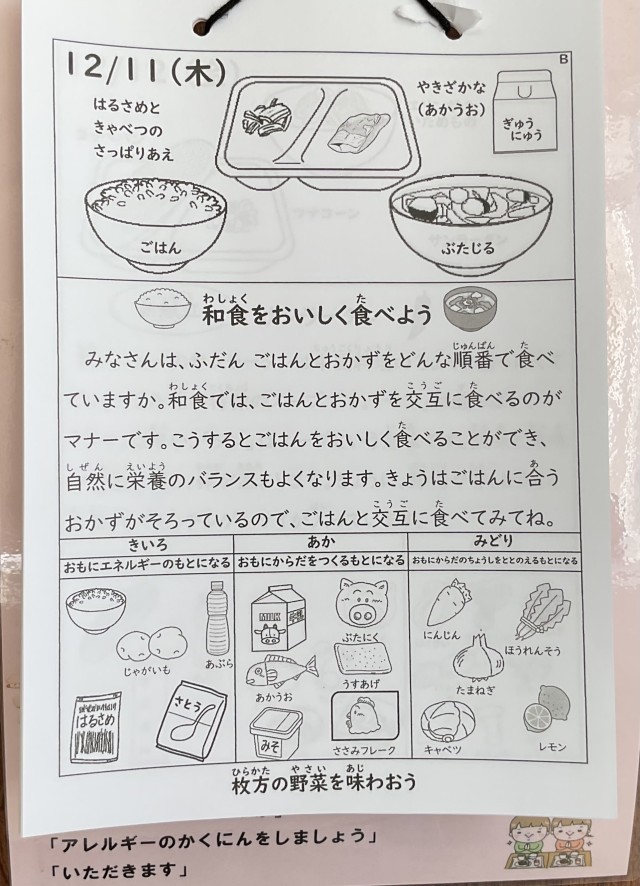 12/11(木)
B
はるさめと
きゃべつの
さっぱりあえ
やきざかな
(あかうお)
ぎゅう
にゅう
ごはん
ぶたじる
和食をおいしく食べよう
みなさんは、ふだん ごはんとおかずをどんな順番で食べ
ていますか。和食では、ごはんとおかずを交互に食べるのが
マナーです。こうするとごはんをおいしく食べることができ、
自然に栄養のバランスもよくなります。きょうはごはんに合う
おかずがそろっているので、ごはんと交互に食べてみてね。
きいろ
おもにエネルギーのもとになる
じゃがいも
あぶら
はるさめ
さとう
あか
おもにからだをつくるもとになる
MILK
ぶたにく
あかうお
うすあげ
みそ
ささみフレーク
みどり
おもにからだのちょうしをととのえるもとになる
にんじん
ほうれんそう
たまねぎ
キャベツ
レモン
枚方の野菜を味わおう
「アレルギーのかくにんをしましょう」
「いただきます」